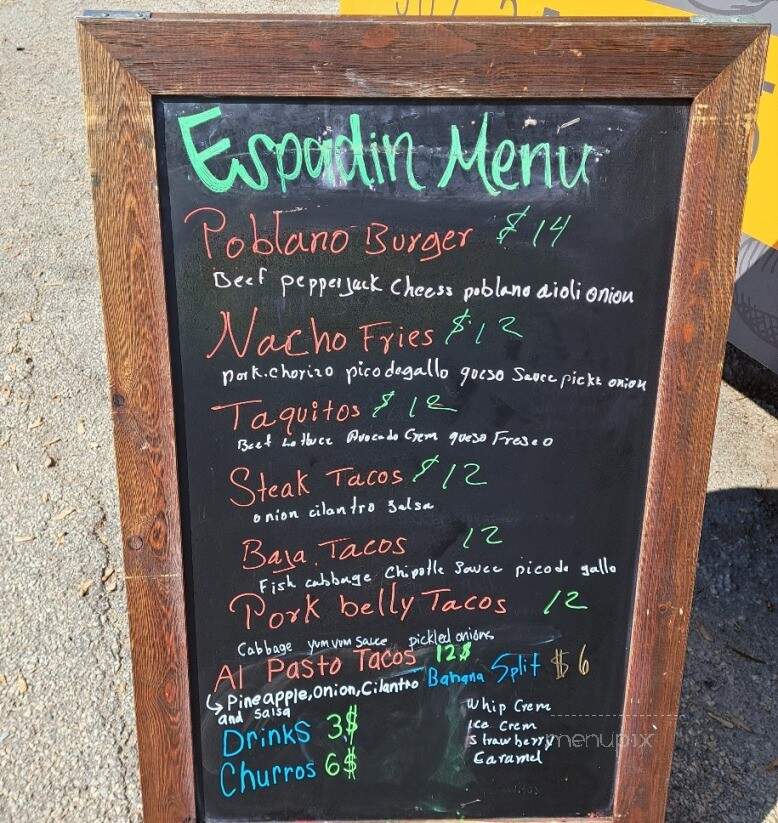 Espadin Menu
Poblano Burger $14
Beef pepperjack cheess poblano aioli onion
Nacho Fries $12
pork.chorizo pico degallo queso Sauce pickt onion
Taquitos $12
Beef Lettuce Avocado Crem queso Fresco
Steak Tacos $12
onion cilantro salsa
Baja.Tacos 12
Fish cabbage Chipotle Sauce picode gallo
Pork belly Tacos 12
Cabbage yum yum sauce pickled onions
Al Pasto Tacos 12$
Pineapple, Onion, Cilantro
and Salsa
Banana Split $6
Whip Crem
Ice Crem
Strawberry
Caramel
Drinks 3$
Churros 6$
menupix